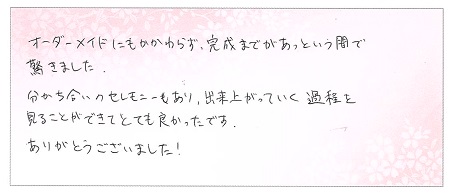 オーダーメイドにもかかわらず、完成までがあっという間で
驚きました.
分かち合いのセレモニーもあり,出来上がっていく過程を
見ることができてとても良かったです.
ありがとうございました!